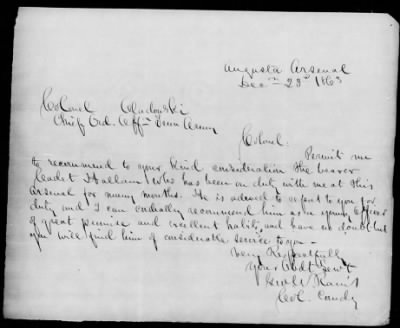 Augusta Arsenal
Dec 23rd 1863
Colonel Oladowski
Chief Ord. Offr Tenn Army
Colonel. Permit me
to recommend to your kind consideration the bearer
Cadet Hallam who has been on duty with me at this
Arsenal for many months. He is ordered to report to you for
duty and I can cordially recommend him as a young officer
of great promise and excellent habits, and have no doubt but
you will find him of considerable service to you -
Very Respectfully
Your Obdt Servt
Geo W Rains
Col. Comdg